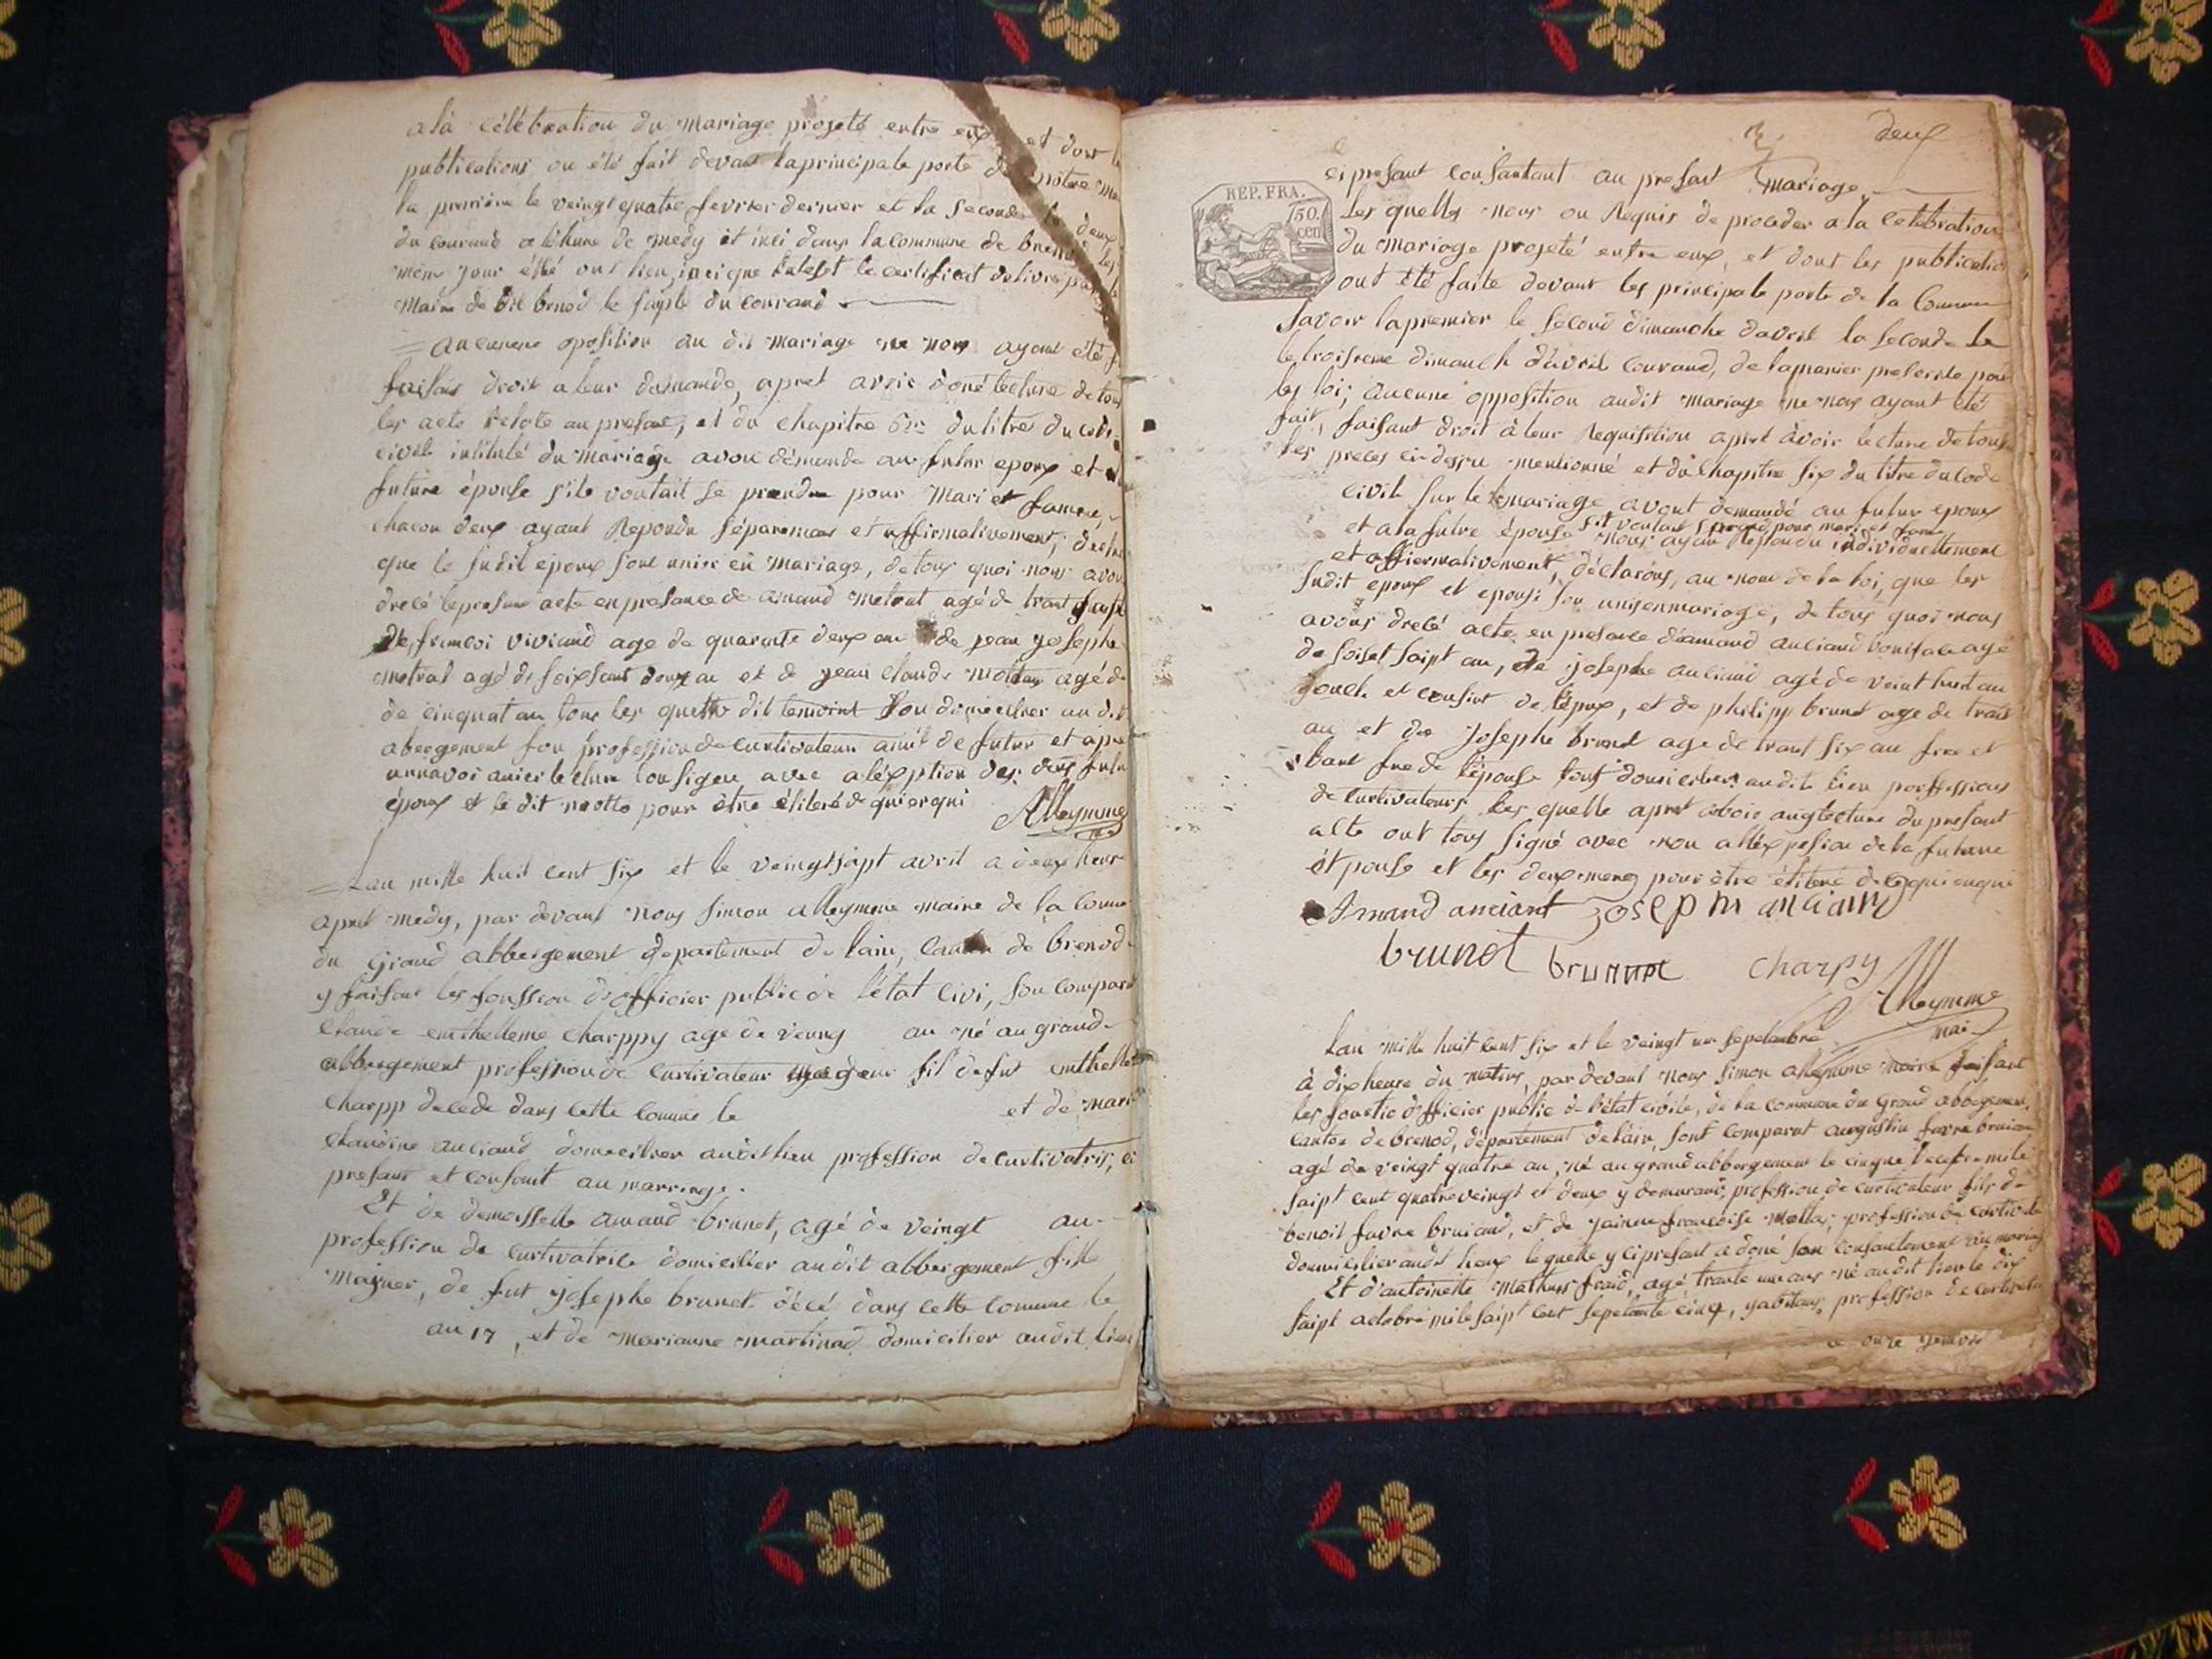 a la célébration du mariage projeté entre eux et dont
publications ou été fait devant la principale porte de notre
la première le veingt quatre fevrier dernier et la seconde le deux
du courand a l'hure de medy et inci dans la commune de brenod les
même jour
maire de dit brenod le du courand
= aucunne oposition au dit mariage ne nous ayant été
faisant droit a leur demande, apret avoir doné lecture de tous
les acte relate au presant, et du chapitre 6me du litre du code
civile intitulé du mariage avon demande au futur epoux et
future épouse s'ile voulait se prendre pour mari et famme,
chacun deux ayant Repondu séparemant et affirmativement;
que le sudit epoux sont unis en mariage, de tous quoi nous avon
drecé le presant acte en presance de amand metral agé de trant
de francoi viviand age de quarante deux an de jean josephe
metral agé de soixsant douze an et de jean claude mottaz agé de
de cinquat an tous les quelle dit temoint sou domicilier au dit
abergement sou profession de curtivateur amit de futur et apre
lecture on signe avec a l'éxption des deux futur
époux et le dit motto pour être éliteré de qui en qui
Alleymme
=Lan mille huit cent six et le veingt sapt avril a deux heur
apret medy, par devant nous simon alleymme maire de la comune
du grand abbergement departement de lain, canton de brenod
y faisant les fonssion d'officier public de l'état civi, son comparu
Claude enthelleme charppy age de veing an né au grand
abbergement profession de curtivateur mageur fil de fut enthelle
charpp decede dans cette comune le et de mari
claudine anciand domicilier au dit lieu profession de curtivatris, ci
presant et consant au marriage.
Et de demoisselle amand brunet, agé de veingt an
profession de curtivatrice domicilier au dit abbergement fille
majuer, de fut josephe brunet décé dans cette comune le
an 17, et de marianne martinad domicilier au dit lieu
deux
REP. FRA.
150.
cen
ci presant consantant au presant mariage.
Les quelles nous ou Requis de proceder a la celebration
du mariage projeté entre eux, et dont les publicatio
ont été faite devant les principale porte de la Commune
savoir la premier le second dimanche d'avril la seconde le
le troisieme dimanch d'avril courand, de la manier prescrite pour
les loi; aucunne opposition audit mariage ne nous ayant été
fait, faisant droit à leur Requisition apret àvoir lecture de tous
les pieces ci dessu mentionné et du chapitre six du litre du code
civile sur le mariage avont demandé au futur epoux
et a la futre épouse s'il voulait prand pour mari et fame
nous ayan Repondu individuellement
et affiermativement, déclarons, au nom de la loi, que les
sudit epoux et epouse son unis en mariage, de tous quoi nous
avons drecé acte en presance d'amand anciand bonifa agé
de soiset saipt an, de josephe anciand agé de veint huit an
et cousint de l'épux, et de philipp brunet age de trant
an et de josephe brunet age de trant six an frer et
frer de l'épouse tous domicilier audit lieu porfession
de curtivateurs les quelle apret lecture du presant
acte ont tous signé avec nou a l'éxpesion de la future
étpouse et les deux mere pour être éliteré de qui en qui
Amand anciant joseph anciand
brunet brunnet charpy
Alleymme
mai
Lan mille huit cent six et le veingt un sepetanbre
à dix heure du matins, par devant nous simon alleymme maire faisant
les fonctio d'officier public de l'état civile, de la commune du grand abbergement,
canton de brenod, département de lain, sont comparut augustin favre bruiand
agé de veingt quatre an, né au grand abbergement le cinque mile
saipt cent quatre veingt et deux y demurand, profession de curtivateur fils de
benoit favre bruiand, et de jainne francoise mottaz, profession de curtivate
domicilier audit lieux le quelle y ci presant a doné son consantement au mariag
Et d'antoinette mathus fraid, agé trante un ans né au dit lieu le dix
saipt actobre mile saipt cent sepetante cinq, y abitant, profession de curtivatri